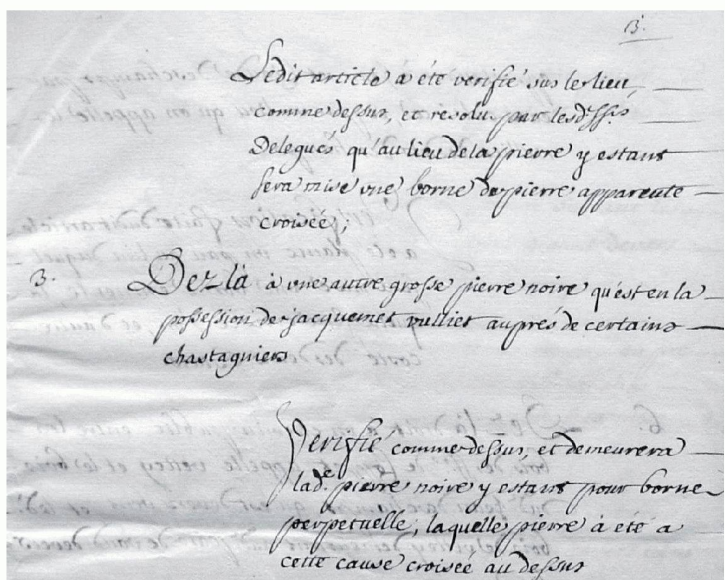 13.
Ledit article à été verifié sus le lieu
comme dessus, et resolu par lesd.
Delegués qu'au lieu de la pierre y estant
sera mise une borne de pierre apparente
croisée;
3. Dez là à une autre grosse pierre noire qu'est en la
possession de jacquemet vulliet auprés de certains
chastagniers
Verifié comme dessus, et demeurera
lad.e pierre noire y estant pour borne
perpetuelle, laquelle pierre à été a
cette cause croisée au dessus